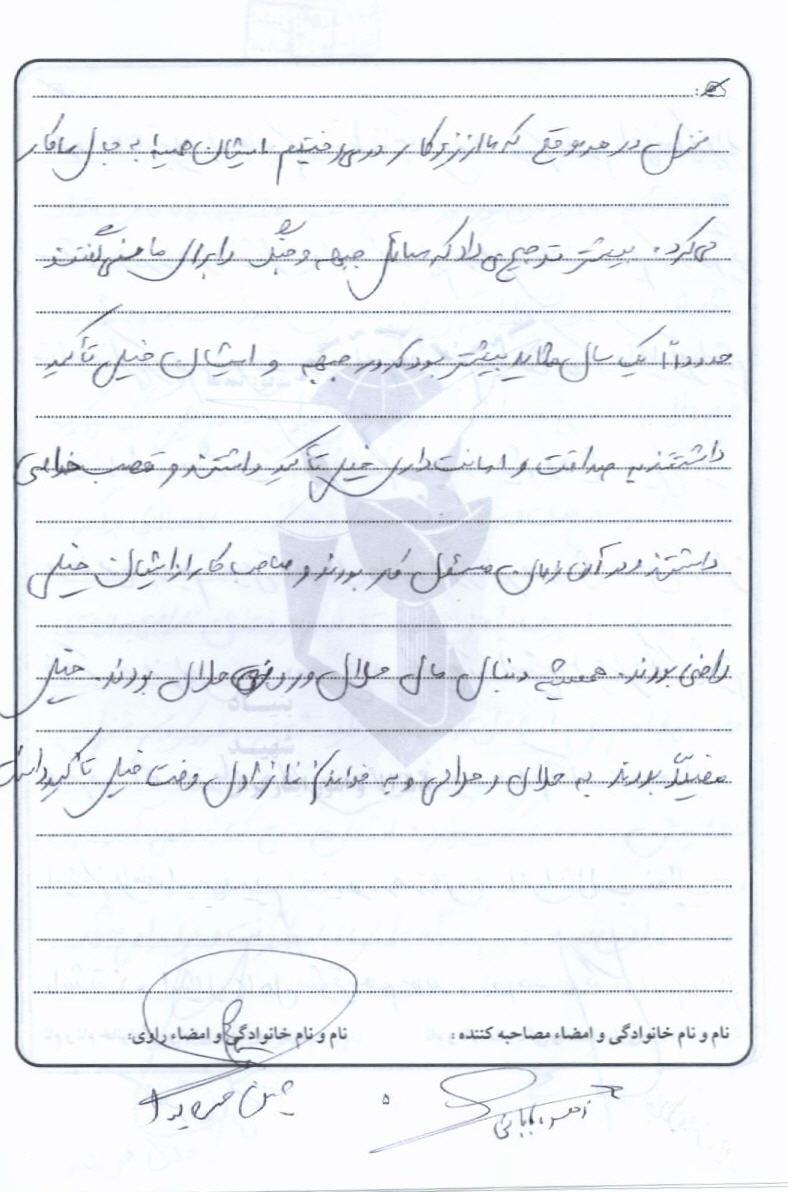 منزل در هر موقع که ما از زیر کار در می رفتیم ایشان همیشه به جای ما کار
می کرد. بیشتر ترجیح می داد که مسائل جبهه و جنگ را برای ما نمی گفتند
حدوداً یک سال شاید بیشتر بود که در جبهه و ایشان خیلی تأکید
داشتند به صداقت و امانت داری خیلی تأکید داشتند و تعصب خاصی
داشتند و در آن زمان مسئول کار بودند و صاحب کار از ایشان خیلی
راضی بودند. همیشه دنبال مال حلال و روزی حلال بودند. خیلی
مقید بودند به حلال و حرامی و به خواندن نماز اول وقت خیلی تأکید داشتند
بنیاد
شهید
نام و نام خانوادگی و امضاء مصاحبه کننده :
نام و نام خانوادگی و امضاء راوی:
۵